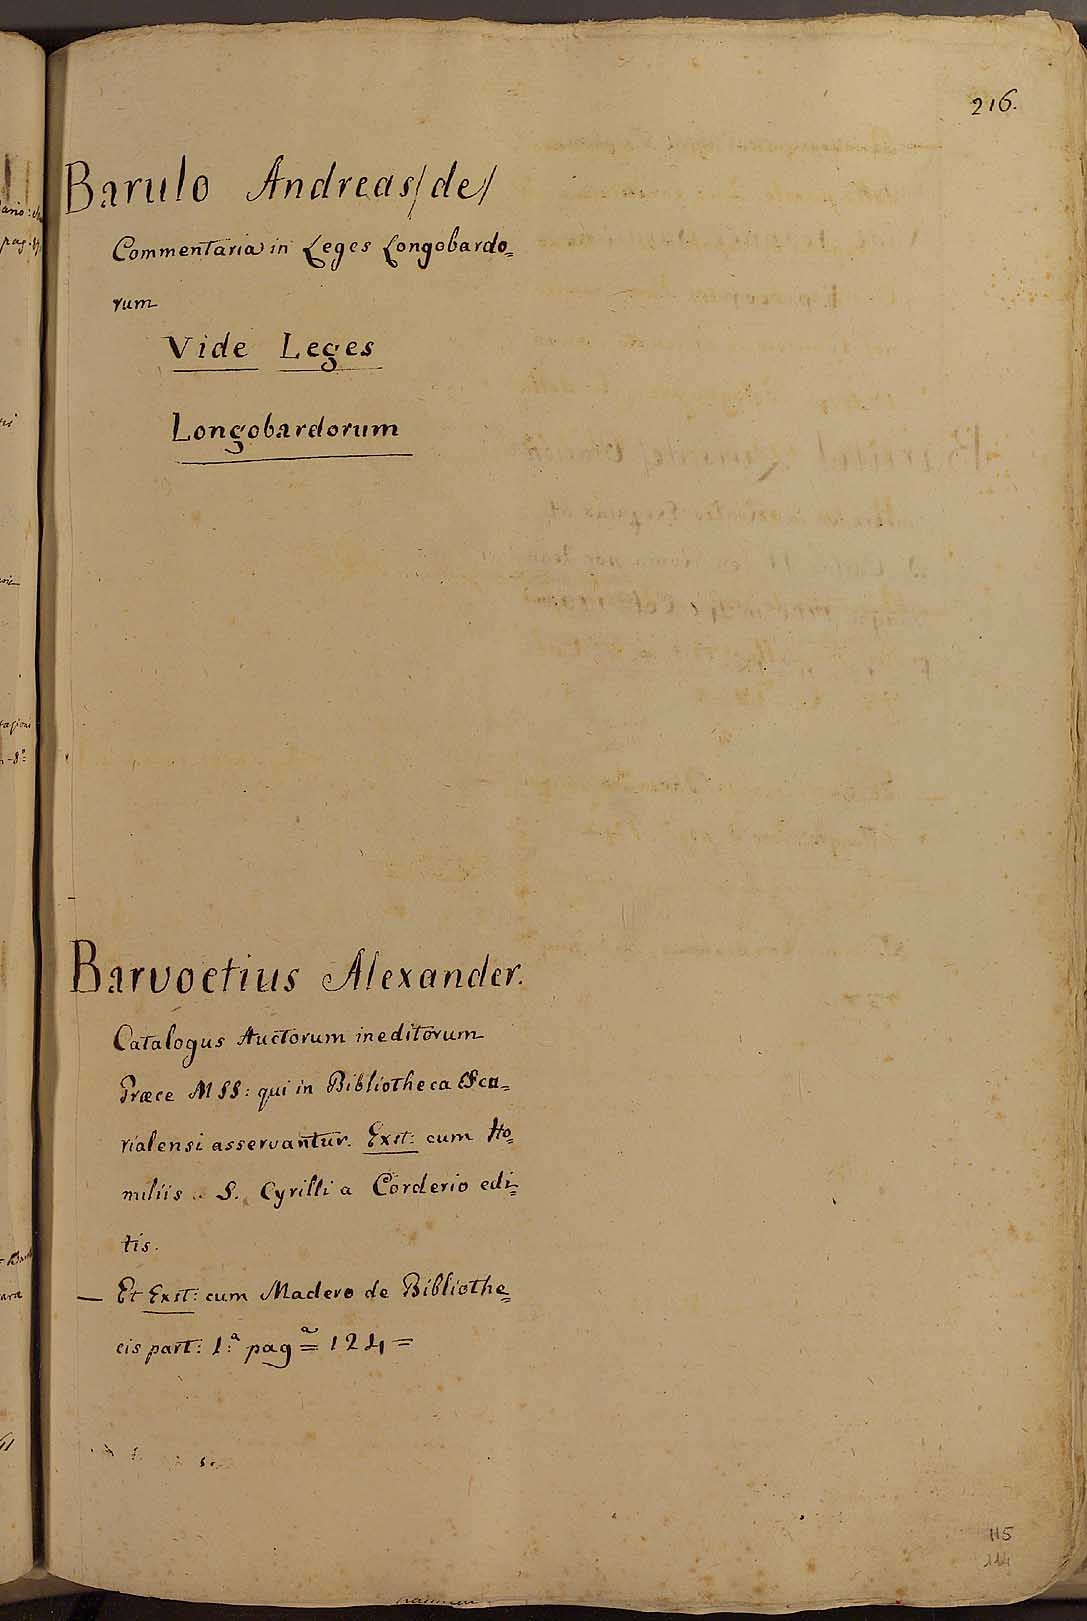 216.
Barulo Andreas/de/
Commentaria in Leges Longobardo=
rum
Vide Leges
Longobardorum
Barvoetius Alexander.
Catalogus Auctorum ineditorum
Præce MSS: qui in Bibliotheca Escu=
rialensi asservantur. Exst: cum Ho=
miliis S. Cyrilli a Corderio edi=
tis.
— Et Exst: cum Madero de Bibliothe=
cis part: 1.ª pag.ª = 124 =
115
114